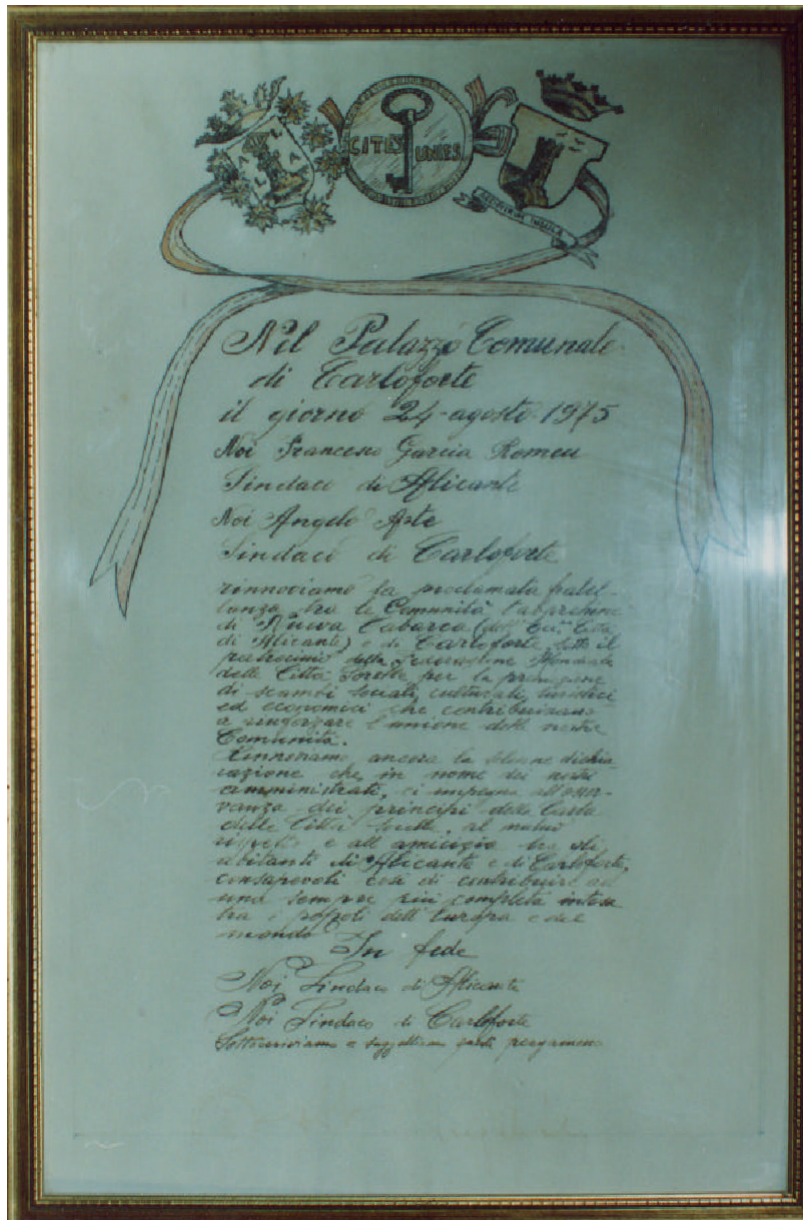 CITES UNIES
Nel Palazzo Comunale
di Carloforte
il giorno 24 agosto 1975
Noi Francesco Garcia Romeu
Sindaco di Alicante
Noi Angelo Aste
Sindaco di Carloforte
rinnoviamo la proclamata fratel-
lanza tra le Comunità tabarchine
di Nueva Tabarca (dell' Città
di Alicante) e di Carloforte sotto il
patrocinio della Federazione Mondiale
delle Città Sorelle per la promozione
di scambi sociali, culturali, turistici
ed economici che contribuiscano
a rinforzare l'unione delle nostre
Comunità.
Rinnoviamo ancora la solenne dichia-
razione che, in nome dei nostri
amministrati, ci impegna all'osser-
vanza dei principi della Carta
delle Città Sorelle, al mutuo
rispetto e all'amicizia tra gli
abitanti di Alicante e di Carloforte,
consapevoli così di contribuire ad
una sempre più completa intesa
tra i popoli dell'Europa e del
mondo
In fede
Noi Sindaco di Alicante
Noi Sindaco di Carloforte
Sottoscriviamo e suggelliamo questa pergamena